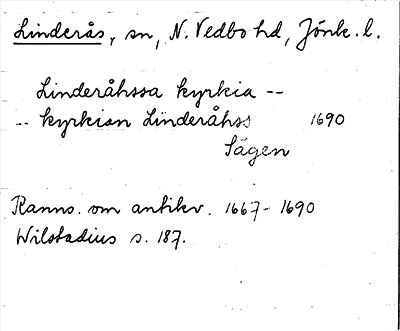 Linderås, sn, N. Vedbo hd, Jönk. l.
Linderåhssa kyrkia --
-- kyrkian Linderåhss 1690
Sägen
Ranns. om antikv. 1667-1690
Wilstadius s. 187.